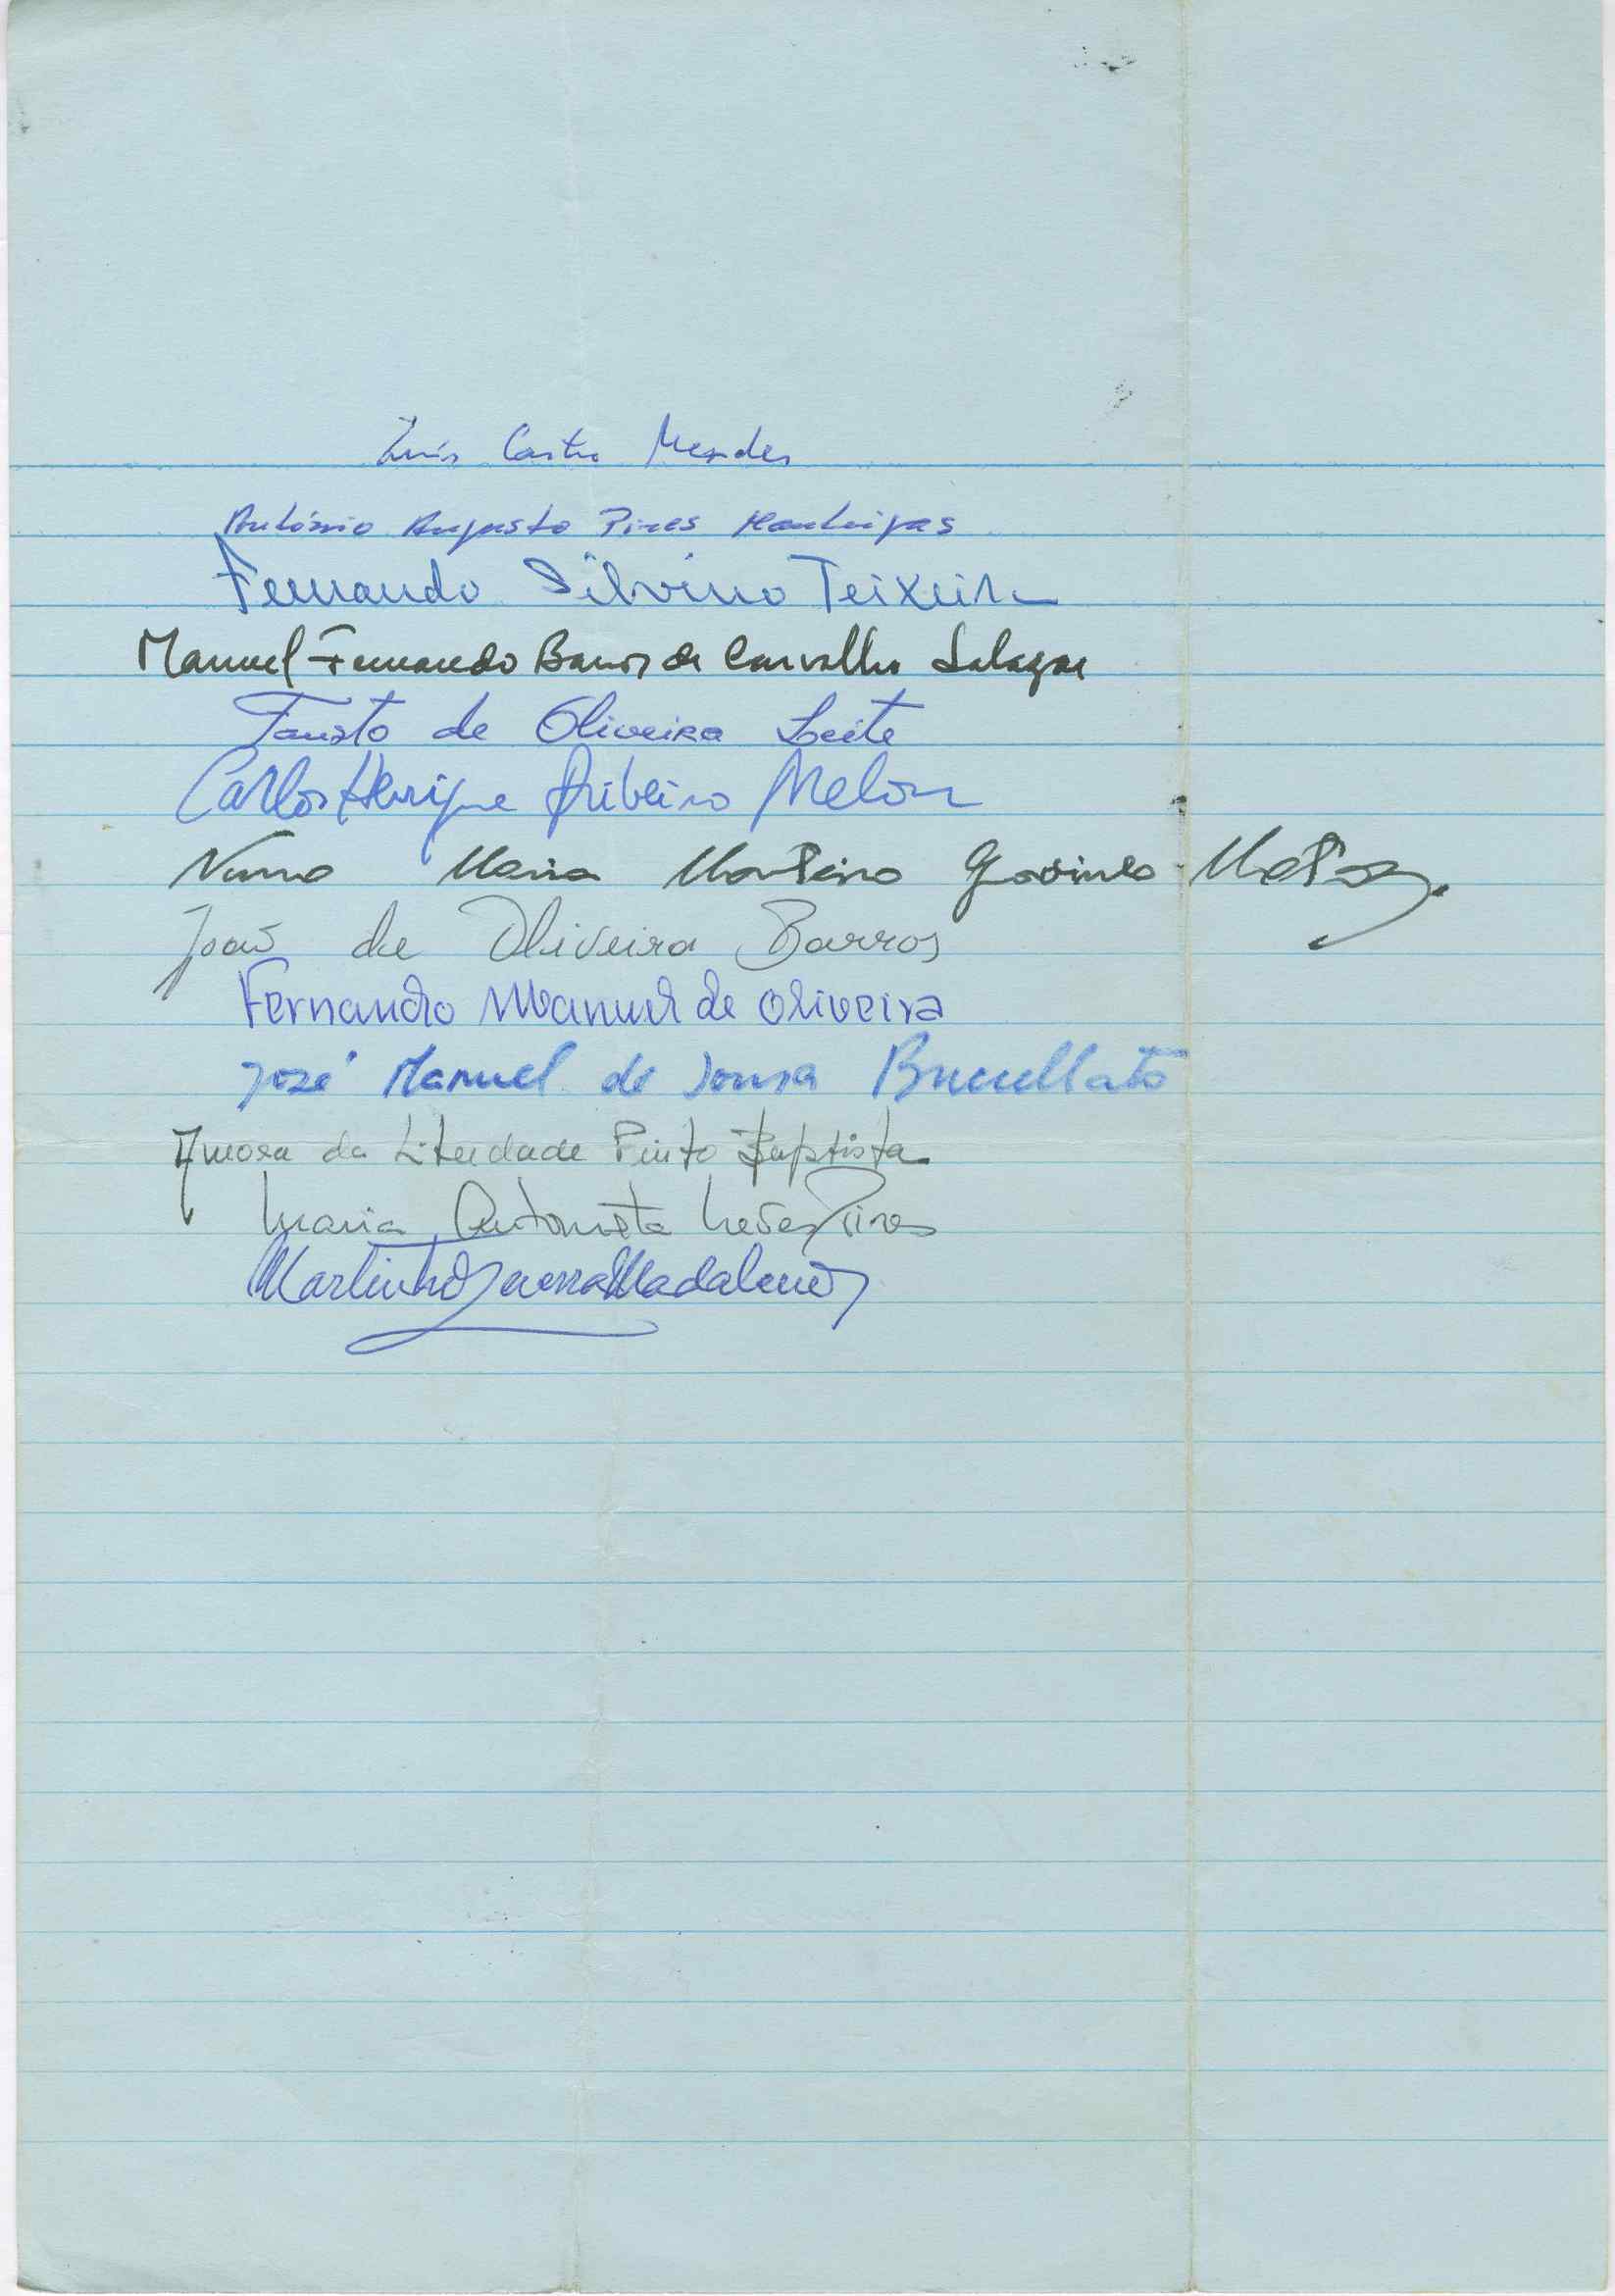 Luís Castro Mendes
António Augusto Pires Manteigas
Fernando Silvino Teixeira
Manuel Fernando Barros de Carvalho Salazar
Fausto de Oliveira Leite
Carlos Henrique Ribeiro Melon
Nuno Maria Monteiro Godinho Matos
João de Oliveira Barros
Fernando Manuel de Oliveira
José Manuel de Sousa Bucellato
Amora da Liberdade Pinto Baptista
Maria Antonieta Neves Pires
Martinho Madaleno